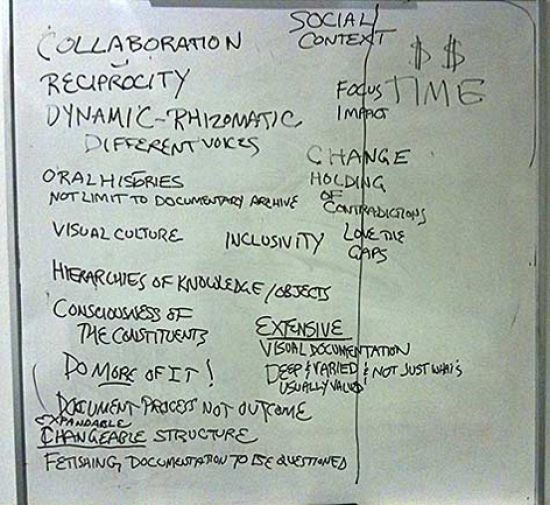 COLLABORATION
RECIPROCITY
DYNAMIC-RHIZOMATIC
DIFFERENT VOICES
ORAL HISTORIES
NOT LIMIT TO DOCUMENTARY ARCHIVE
VISUAL CULTURE
INCLUSIVITY
HIERARCHIES OF KNOWLEDGE/OBJECTS
CONSCIOUSNESS OF
THE CONSTITUENTS
DO MORE OF IT!
DOCUMENT PROCESS NOT OUTCOME
EXPANDABLE
CHANGEABLE STRUCTURE
FETISHING DOCUMENTATION TO BE QUESTIONED
SOCIAL
CONTEXT
$ $
TIME
FOCUS
IMPACT
CHANGE
HOLDING
OF
CONTRADICTIONS
LOVE THE
GAPS
EXTENSIVE
VISUAL DOCUMENTATION
DEEP & VARIED & NOT JUST WHAT'S
USUALLY VALUED